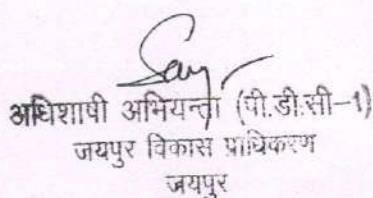 अधिशाषी अभियन्ता (पी.डी.सी-1)
जयपुर विकास प्राधिकरण
जयपुर